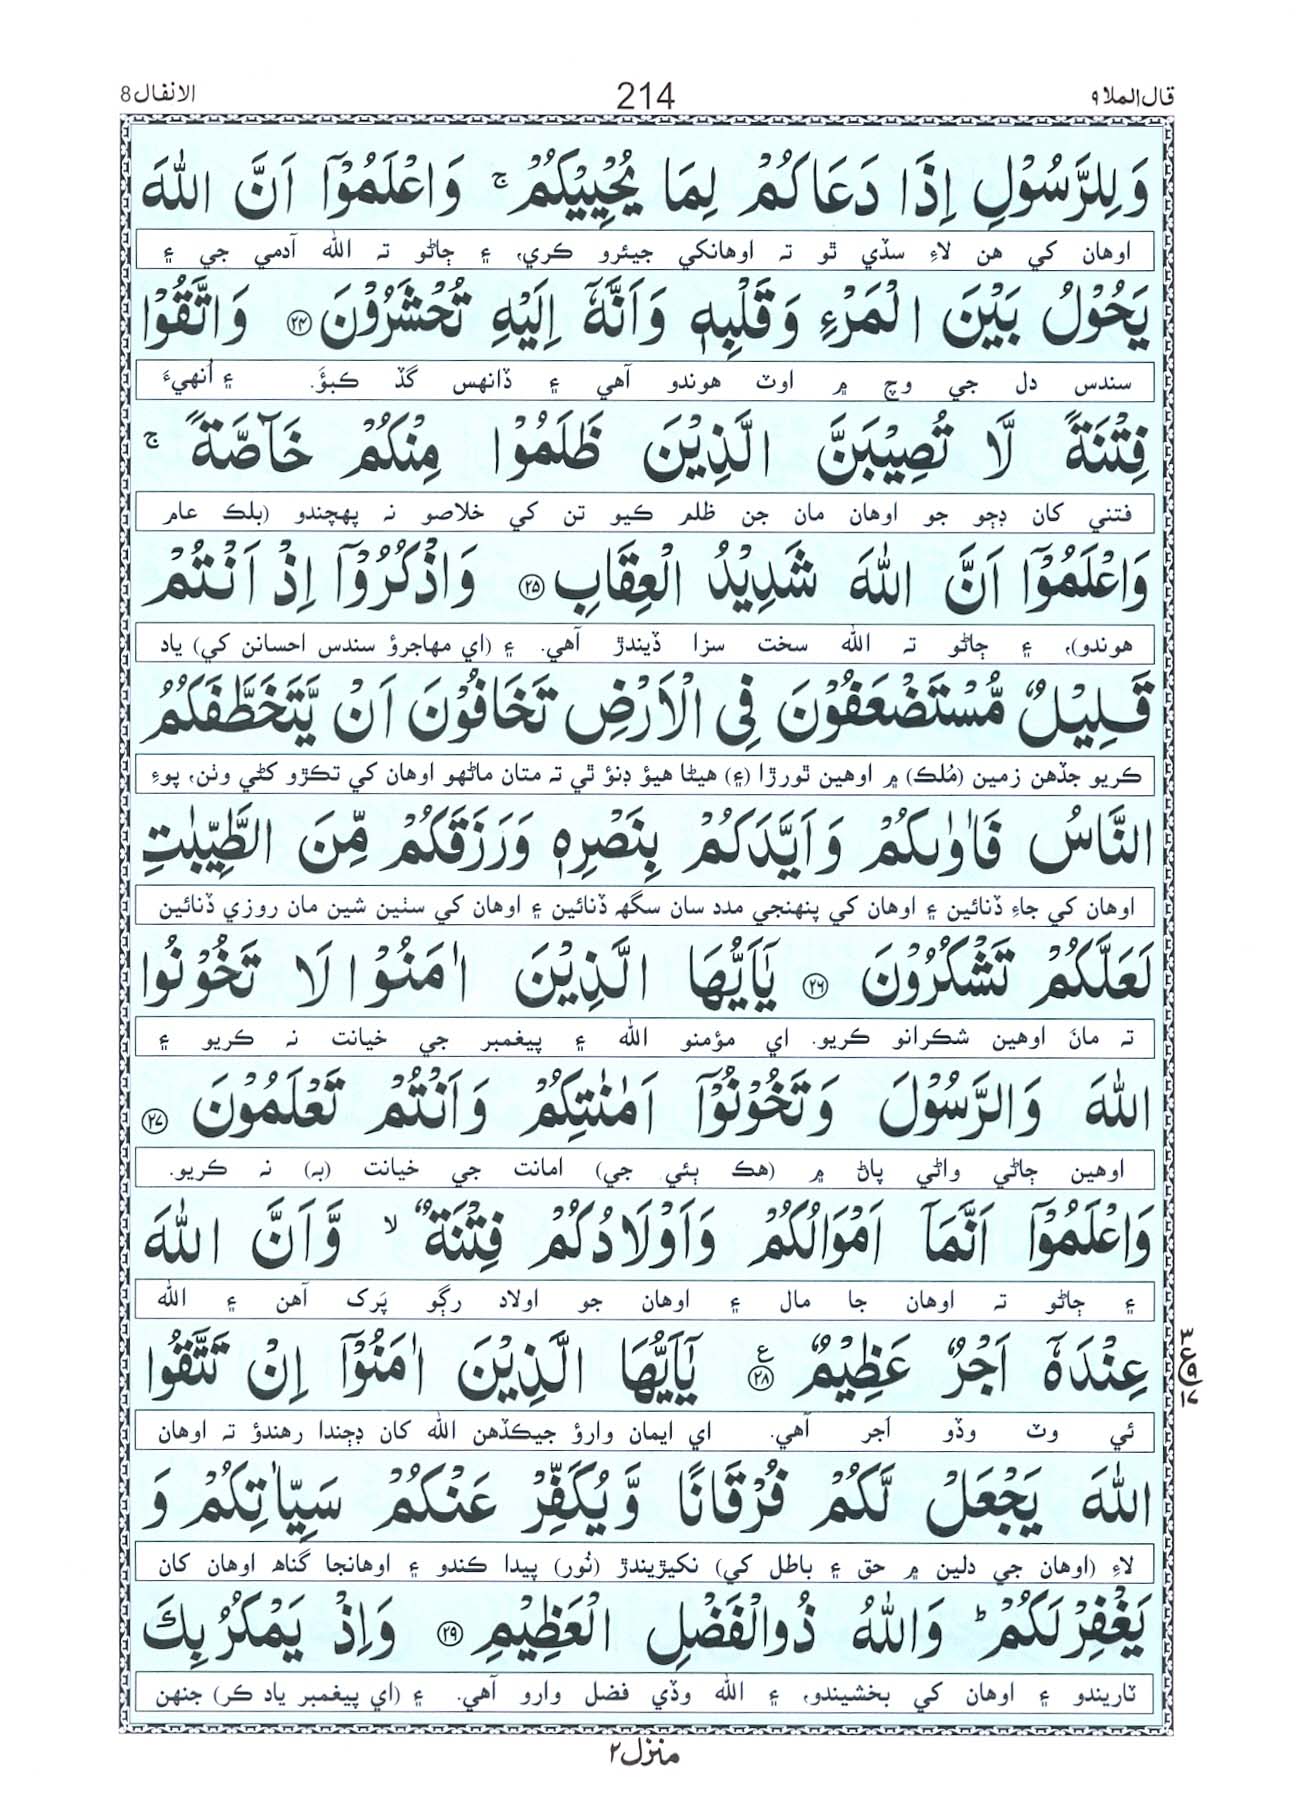 قال الملا ٩ 214 الانفال 8
وَلِلرَّسُوْلِ اِذَا دَعَاكُمْ لِمَا يُحْيِيْكُمْ ۚ وَاعْلَمُوْٓا اَنَّ اللّٰهَ
اوهان کي هن لاءِ سڏي ٿو ته اوهانکي جيئرو ڪري، ۽ ڄاڻو ته الله آدمي جي ۽
يَحُوْلُ بَيْنَ الْمَرْءِ وَقَلْبِهٖ وَاَنَّهٗٓ اِلَيْهِ تُحْشَرُوْنَ ﴿۲۴﴾ وَاتَّقُوْا
سندس دل جي وچ ۾ اوٽ هوندو آهي ۽ ڏانهس گڏ ڪبؤ. ۽ اُنهيءَ
فِتْنَةً لَّا تُصِيْبَنَّ الَّذِيْنَ ظَلَمُوْا مِنْكُمْ خَآصَّةً ۚ
فتني کان ڊڄو جو اوهان مان جن ظلم ڪيو تن کي خلاصو نه پهچندو (بلڪ عام
وَاعْلَمُوْٓا اَنَّ اللّٰهَ شَدِيْدُ الْعِقَابِ ﴿۲۵﴾ وَاذْكُرُوْٓا اِذْ اَنْتُمْ
هوندو)، ۽ ڄاڻو ته الله سخت سزا ڏيندڙ آهي. ۽ (اي مهاجرؤ سندس احسانن کي) ياد
قَلِيْلٌ مُّسْتَضْعَفُوْنَ فِي الْاَرْضِ تَخَافُوْنَ اَنْ يَّتَخَطَّفَكُمُ
ڪريو جڏهن زمين (مُلڪ) ۾ اوهين ٿورڙا (۽) هيڻا هيؤ ڊنؤ ٿي ته متان ماڻهو اوهان کي تڪڙو کڻي وڃن، پوءِ
النَّاسُ فَاٰوٰىكُمْ وَاَيَّدَكُمْ بِنَصْرِهٖ وَرَزَقَكُمْ مِّنَ الطَّيِّبٰتِ
اوهان کي جاءِ ڏنائين ۽ اوهان کي پنهنجي مدد سان سگهه ڏنائين ۽ اوهان کي سٺين شين مان روزي ڏنائين
لَعَلَّكُمْ تَشْكُرُوْنَ ﴿۲۶﴾ يٰٓاَيُّهَا الَّذِيْنَ اٰمَنُوْا لَا تَخُوْنُوا
ته مانَ اوهين شڪرانو ڪريو. اي مؤمنو الله ۽ پيغمبر جي خيانت نه ڪريو ۽
اللّٰهَ وَالرَّسُوْلَ وَتَخُوْنُوْٓا اَمٰنٰتِكُمْ وَاَنْتُمْ تَعْلَمُوْنَ ﴿۲۷﴾
اوهين ڄاڻي واڻي پاڻ ۾ (هڪ ٻئي جي) امانت جي خيانت (به) نه ڪريو.
وَاعْلَمُوْٓا اَنَّمَآ اَمْوَالُكُمْ وَاَوْلَادُكُمْ فِتْنَةٌ ۙ وَّاَنَّ اللّٰهَ
۽ ڄاڻو ته اوهان جا مال ۽ اوهان جو اولاد رڳو پَرک آهن ۽ الله
عِنْدَهٗٓ اَجْرٌ عَظِيْمٌ ﴿۲۸﴾ ع يٰٓاَيُّهَا الَّذِيْنَ اٰمَنُوْٓا اِنْ تَتَّقُوا
ئي وٽ وڏو اَجر آهي. اي ايمان وارؤ جيڪڏهن الله کان ڊڄندا رهندؤ ته اوهان
اللّٰهَ يَجْعَلْ لَّكُمْ فُرْقَانًا وَّيُكَفِّرْ عَنْكُمْ سَيِّاٰتِكُمْ وَ
لاءِ (اوهان جي دلين ۾ حق ۽ باطل کي) نکيڙيندڙ (نُور) پيدا ڪندو ۽ اوهانجا گناه اوهان کان
يَغْفِرْ لَكُمْ ؕ وَاللّٰهُ ذُو الْفَضْلِ الْعَظِيْمِ ﴿۲۹﴾ وَاِذْ يَمْكُرُ بِكَ
ٽاريندو ۽ اوهان کي بخشيندو، ۽ الله وڏي فضل وارو آهي. ۽ (اي پيغمبر ياد ڪر) جنهن
منزل ۲